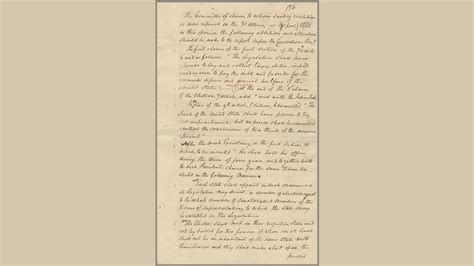 156
The Committee of eleven, to whom sundry resolutions
&c were referred on the 31st Ultimo, report, that
in their opinion the following additions and alterations
should be made to the report before the Convention Viz.
The first clause of the first section of the article
to read as follows. "The Legislature shall have
power to lay and collect taxes duties imposts
and excises to pay the debts and provide for the
common defence and general welfare of the
United States."
At the end of the 2d clause
of the 1 section, 7 article, add "and with the Indian tribes
In place of the 9 article, 1 section, to be inserted "The
Senate of the United States shall have power to try
all impeachments; but no person shall be convicted
without the concurrence of two thirds of the members
present."
After the word Excellency, in the first section, 10
article to be inserted "He shall hold his office
during the term of four years, and together with
the vice President, chosen for the same term, be
elected in the following Manner.
"Each State shall appoint in such manner as
its Legislature may direct a number of electors equal
to the whole number of Senators and Members of the
House of Representatives, to which the State may
be entitled in the Legislature.
"The Electors shall meet in their respective States and
vote by ballot for two persons, of whom one at least
shall not be an inhabitant of the same State with
themselves and they shall make a list of all the